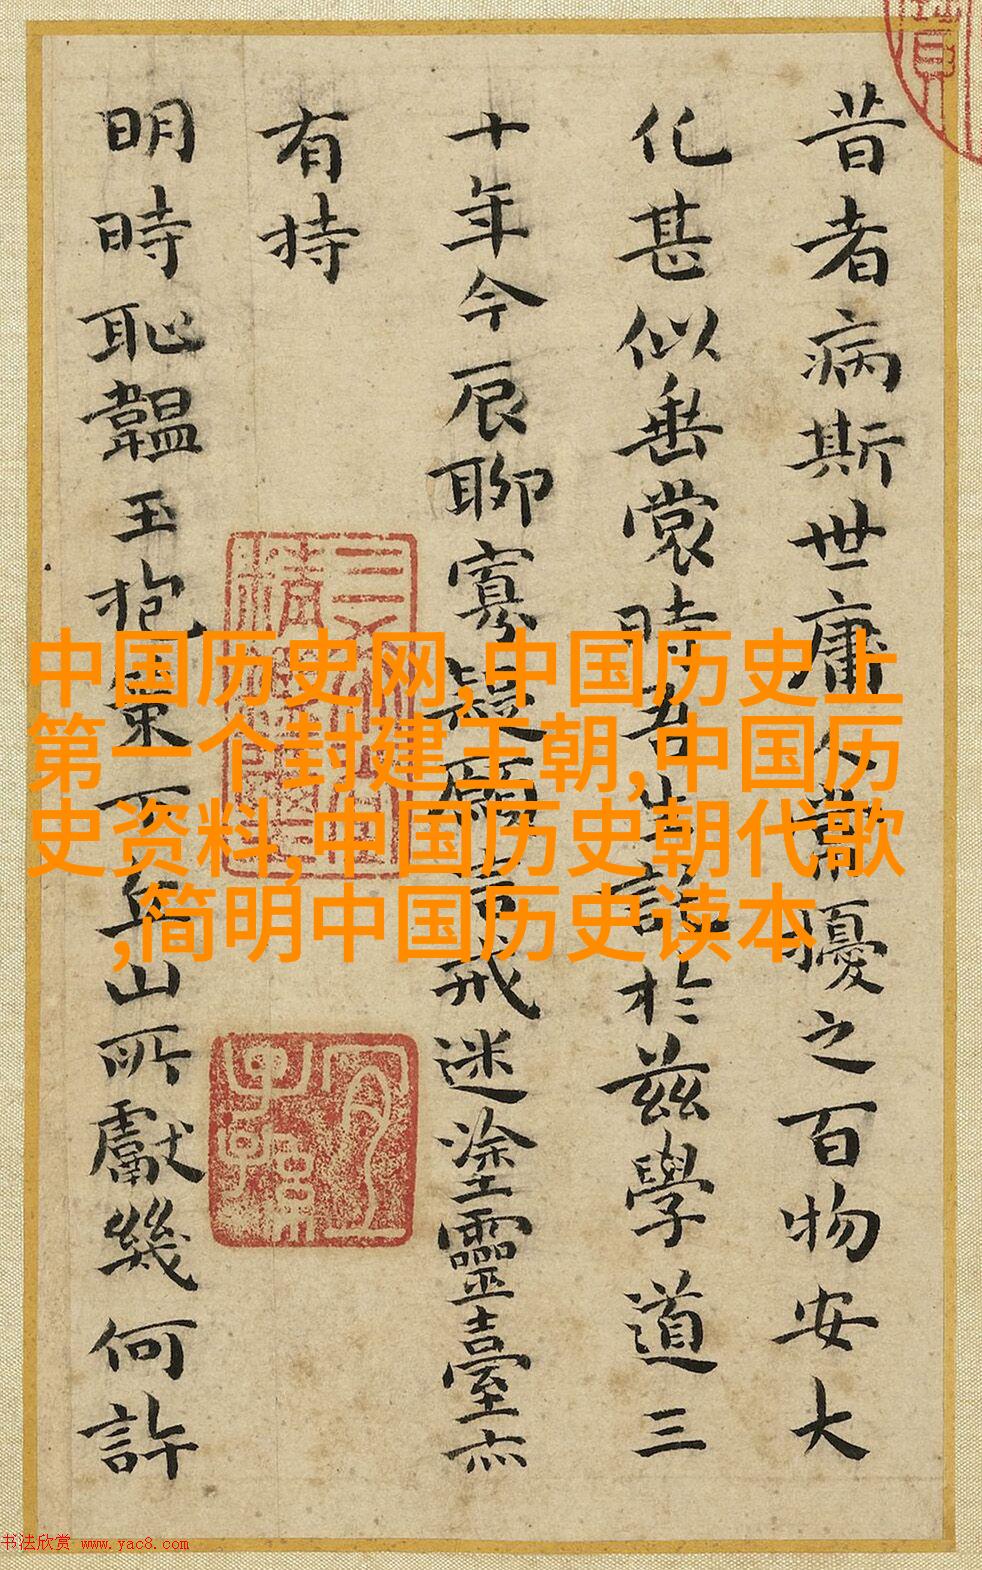 昔者病斯世庸人常擾之百物安大
化甚似垂裳時吾生於茲學道三
十年今辰聊寡疑願言戒迷塗靈臺亦
有持
明時恥韞玉抱策丘山所獻幾何許
中国历史网,中国历史上
第一个封建王朝,中国历
史资料,中国历史朝代歌
,简明中国历史读本
书法欣赏 www.yac8.com